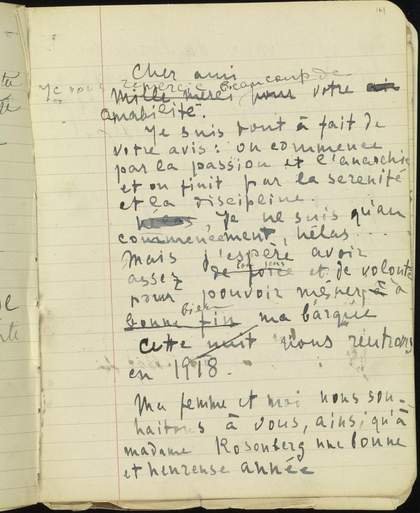 161
Cher ami
Je vous remercie beaucoup de
Mille merci pour votre
amabilité.
Je suis tout à fait de
votre avis : on commence
par la passion et l'anarchie
et on finit par la serenité
et la discipline.
hélas, Je ne suis qu'au
commencement, hélas....
Mais j'espère avoir
bon sens
assez de force et de volonté
pour pouvoir méner à
bien
bonne fin ma barque
Cette nuit nous rentrons
en 1918.
Ma femme et moi nous sou-
haitons à vous, ainsi qu'à
madame Rosenberg une bonne
et heureuse année